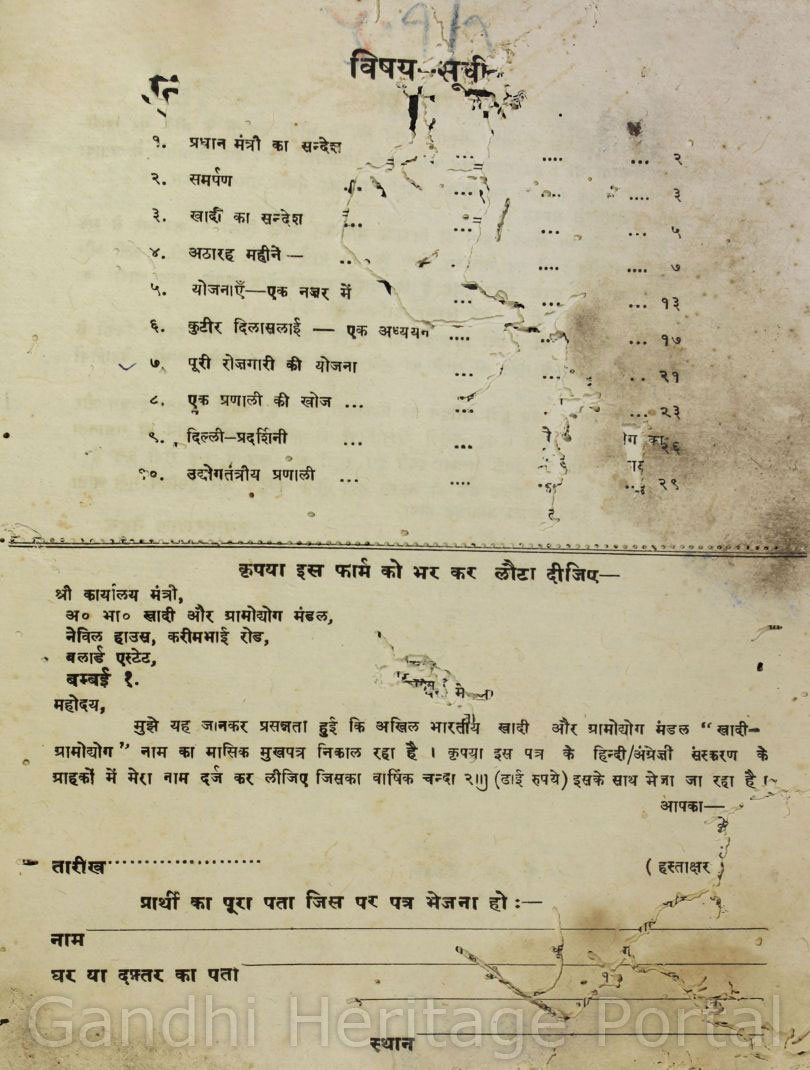 विषय-सूची
१. प्रधान मंत्री का सन्देश ... .... ... २
२. समर्पण ... ... .... ३
३. खादी का सन्देश ... ... ... ५
४. अठारह महीनें — ... .... .... ७
५. योजनाएँ—एक नज़र में ... ... ... १३
६. कुटीर दिलासलाई — एक अध्ययन .... ... ... १७
७. पूरी रोज़गारी की योजना ... ... .. २१
८. एक प्रणाली की खोज ... ... ... २३
९. दिल्ली-प्रदर्शिनी ... ... २६
१०. उद्योगतंत्रीय प्रणाली ... .... ... २९
कृपया इस फार्म को भर कर लौटा दीजिए—
श्री कार्यालय मंत्री,
अ० भा० खादी और ग्रामोद्योग मंडल,
नेविल हाउस, करीमभाई रोड,
बलार्ड एस्टेट,
बम्बई १.
महोदय,
मुझे यह जानकर प्रसन्नता हुई कि अखिल भारतीय खादी और ग्रामोद्योग मंडल “खादी-
ग्रामोद्योग” नाम का मासिक मुखपत्र निकाल रहा है । कृपया इस पत्र के हिन्दी/अंग्रेजी संस्करण के
ग्राहकों में मेरा नाम दर्ज कर लीजिए जिसका वार्षिक चन्दा २॥) (ढाई रुपये) इसके साथ भेजा जा रहा है ।
आपका—
तारीख ..................... ( हस्ताक्षर )
प्रार्थी का पूरा पता जिस पर पत्र भेजना हो :—
नाम
घर या दफ़्तर का पता
स्थान
Gandhi Heritage Portal